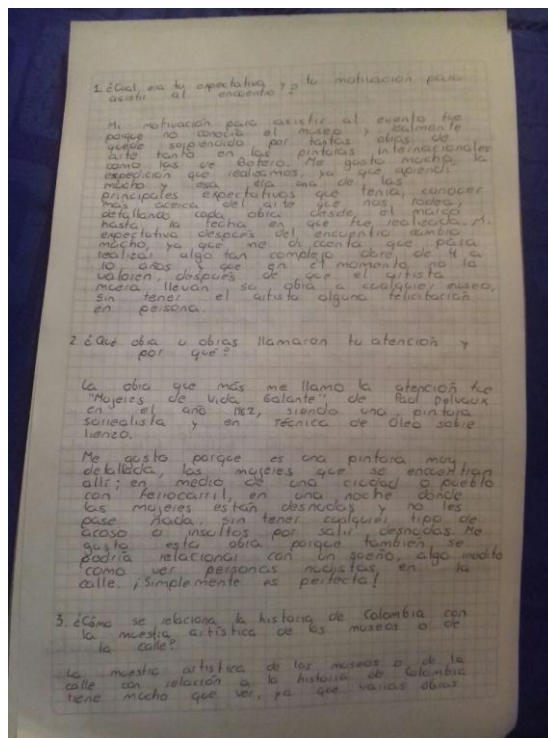 1. ¿Cual era tu expectativa y tu motivación para
asistir al encuentro?
Mi motivación para asistir al evento fue
porque no conocía el museo y realmente
quede sorprendido por tantas obras de
arte tanto en las pinturas internacionales
como las de Botero. Me gusto mucho la
expedición que realizamos, ya que aprendi
mucho y esa era una de las
principales expectativas que tenía, conocer
más acerca del arte que nos rodea,
detallando cada obra desde el marco
hasta la fecha en que fue realizada. Mi
expectativa después del encuentro cambio
mucho, ya que me di cuenta que para
realizar algo tan complejo dure de 4 a
10 años y que en el momento no la
valoren, después de que el artista
muera, llevan su obra a cualquier museo,
sin tener el artista alguna felicitación
en persona.
2 ¿Qué obra u obras llamaron tu atención y
por qué?
La obra que más me llamo la atención fue
"Mujeres de Vida Galante" de Paul Delvaux
en el año 1962, siendo una pintura
surrealista y en técnica de Oleo sobre
lienzo.
Me gusto porque es una pintura muy
detallada, las mujeres que se encuentran
allí; en medio de una ciudad o pueblo
con ferrocarril, en una noche donde
las mujeres están desnudas y no les
pase nada, sin tener cualquier tipo de
acoso o insultos por salir desnudas. Me
gusto esta obra porque también se
podría relacionar con un sueño, algo inedito
como ver personas nudistas en la
calle. ¡Simplemente es perfecta!
3. ¿Cómo se relaciona la historia de Colombia con
la muestra artística de los museos o de
la calle?
La muestra artistica de los museos o de la
calle con relación a la historia de Colombia
tiene mucho que ver, ya que varias obras